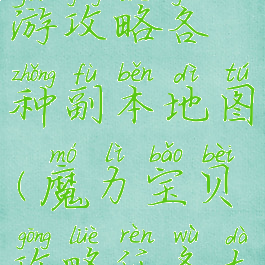 游攻略各
zhǒng fù běn dì tú
种副本地图
mó lì bǎo bèi
(魔力宝贝
gōng lüè rèn wù dà